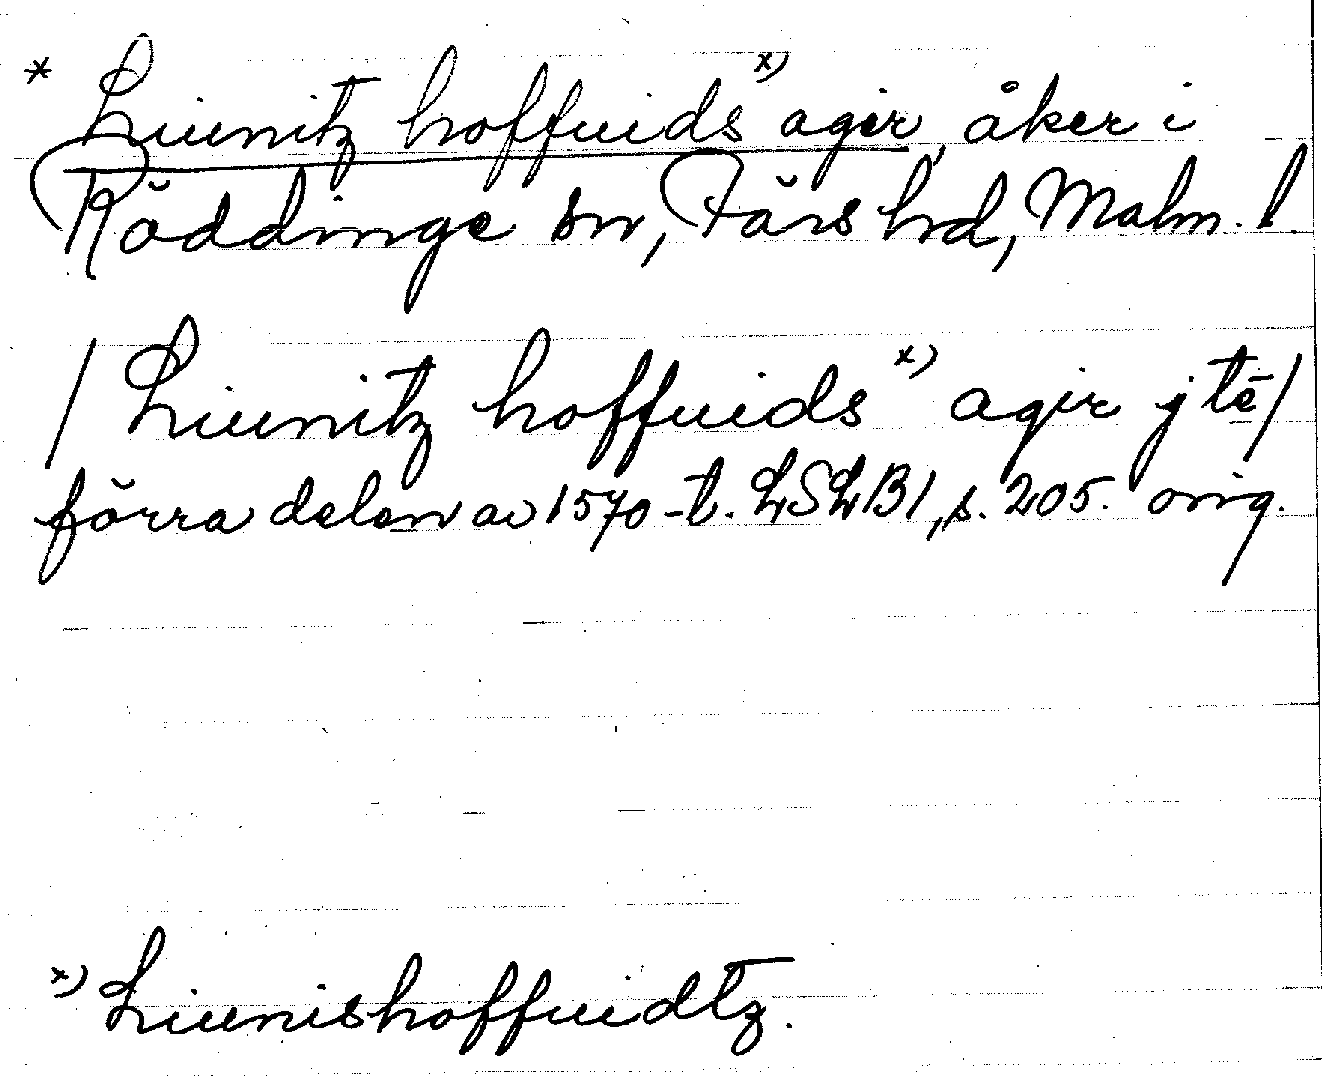 * Liunitz hoffuids x) agir, åker i
Röddinge sn, Färs hd, Malm. l.
/ Liunitz hoffuids x) agir j tē /
förra delen av 1570-t. LSLB1, s. 205. orig.
x) Liunishoffuidtz.